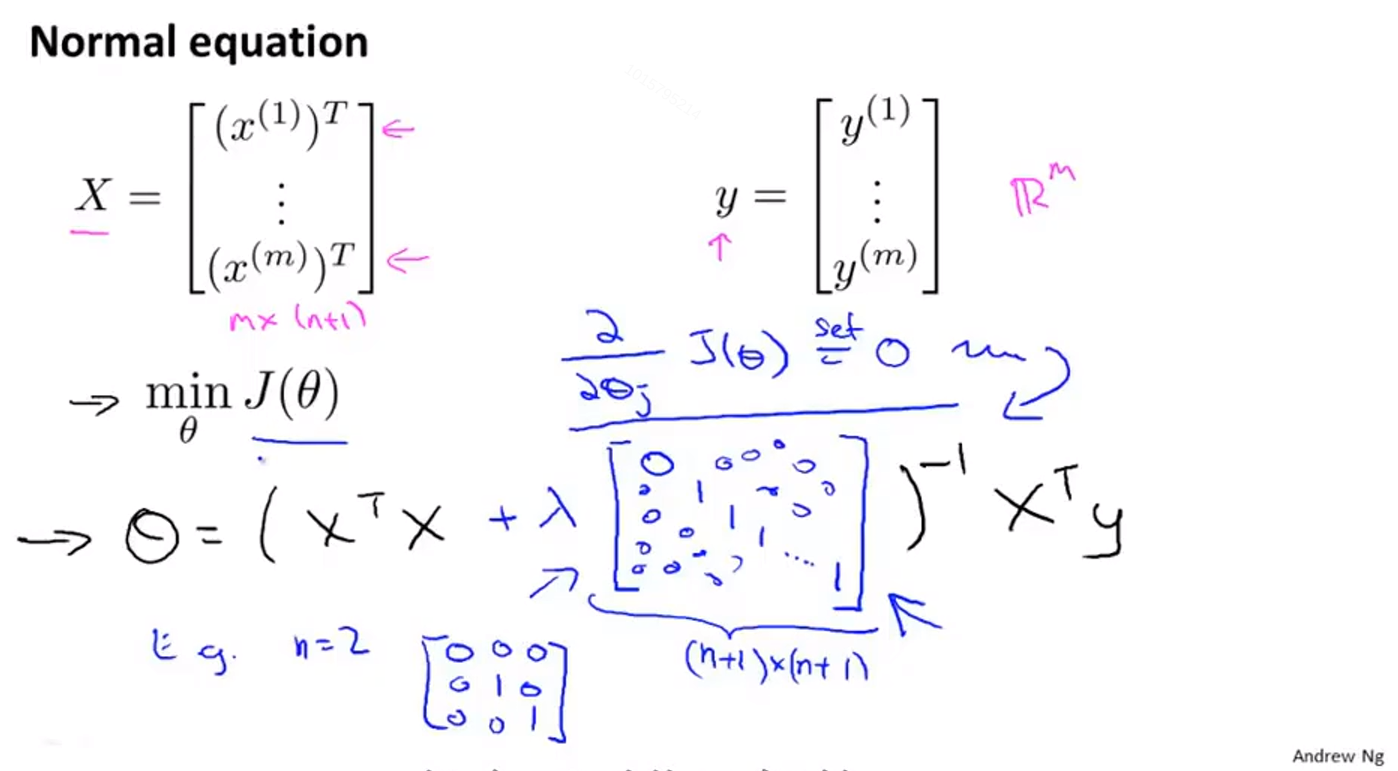 Normal equation
X = [ (x^(1))^T ⋮ (x^(m))^T ] ← ←
m × (n+1)
y = [ y^(1) ⋮ y^(m) ] ℝ^m
∂/∂θj J(θ) set = 0
→ min θ J(θ)
→ θ = ( X^T X + λ [ 0 0 0 0 0 0 1 0 0 1 0 0 0 1 0 0 0 .... 1 ] )^-1 X^T y
(n+1)×(n+1)
E.g. n=2 [ 0 0 0 0 1 0 0 0 1 ]
Andrew Ng